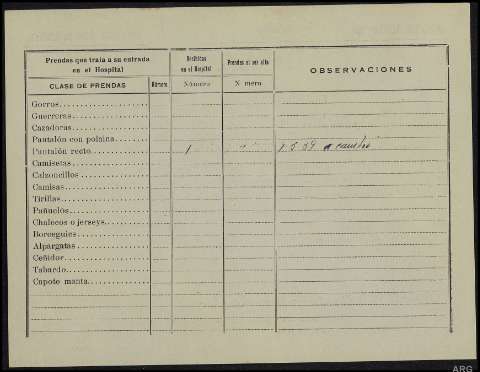 Prendas que traía a su entrada
en el Hospital
Recibidas
en el Hospital
Prendas al ser alta
OBSERVACIONES
CLASE DE PRENDAS
Número
Número
Número
Gorros
Guerreras
Cazadoras
Pantalón con polaina
Pantalón recto 1
Camisetas
Calzoncillos
Camisas
Tirillas
Pañuelos
Chalecos o jerseys
Borceguíes
Alpargatas
Ceñidor
Tabardo
Capote manta
ARG